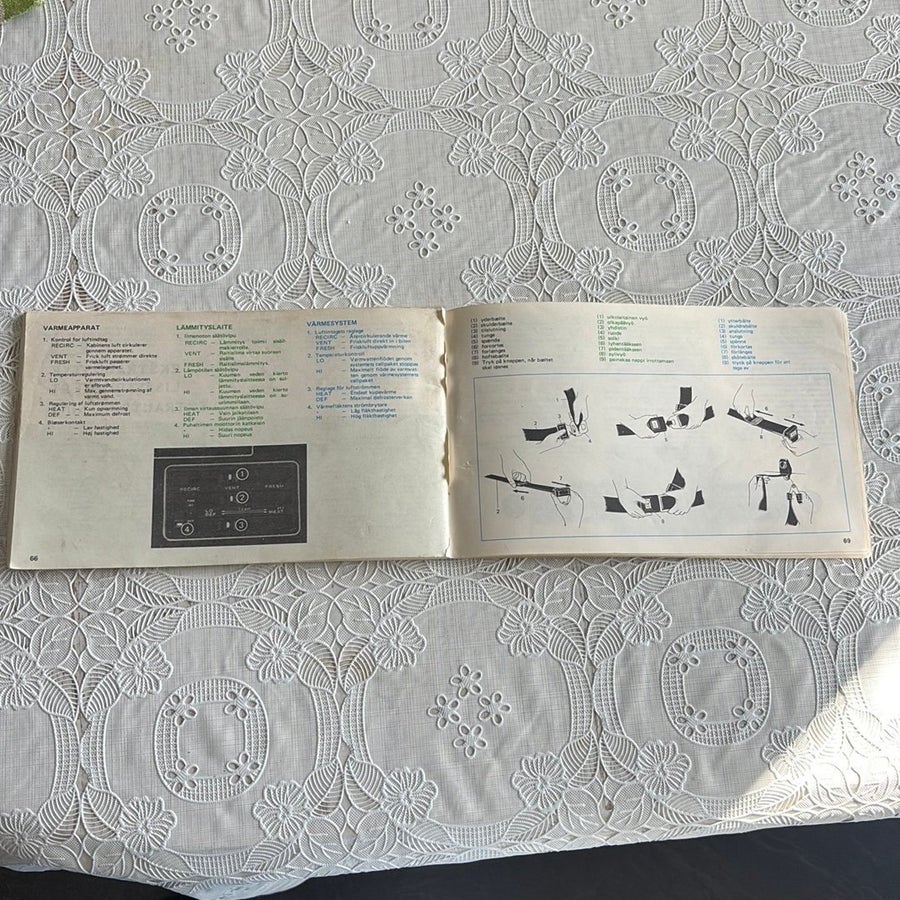 VARMEAPPARAT
1. Kontrol for luftindtag
RECIRC — Kabinens luft cirkulerer
gennem apparatet.
VENT — Frisk luft strømmer direkte
FRESH — Frisk luft passerer
varmelegemet.
2. Temperaturregulering
LO — Varmtvandscirkulationen
er afbrudt.
HI — Max. gennemstrømning af
varmt vand.
3. Regulering af luftstrømmen
HEAT — Kun opvarmning
DEF — Maximum defroster
4. Blæserkontakt
— Lav hastighed
HI — Høj hastighed
66
LÄMMITYSLAITE
1. Ilmanoton säätövipu
RECIRC — Lämmitys toimi sisä-
VENT — Raitisilma virtaa suoraan
sisälle
FRESH — Raitisilmalämmitys
2. Lämpötilan säätövipu
LO — Kuuman veden kierto
lämmityslaitteessa on sul-
HI — Kuuman veden kierto
lämmityslaitteessa on su-
3. Ilman virtaussuunnan säätövipu
HEAT — Vain jalkatilaan
DEF — Suurin jäänpoisto
4. Puhaltimen moottorin katkaisin
— Hidas nopeus
HI — Suuri nopeus
VÄRMESYSTEM
1. Luftintagets reglage
RECIRC — Återcirkulerande värme
VENT — Friskluft direkt in i bilen
FRESH — Friskluftsuppvärmning
2. Temperaturkontroll
LO — Varmvattenflödet genom
cellpaket stoppas
HI — Maximalt flöde av varmvat-
ten genom värmesystemets
cellpaket
3. Reglage för luftströmmen
HEAT — Endast kupévärme
DEF — Maximal defrosterverkan
4. Värmefläktens strömbrytare
— Låg fläkthastighet
HI — Hög fläkthastighet
1
RECIRC VENT FRESH
2
LO HI
DEF HEAT
4 3
(1) yderbælte
(2) skulderbælte
(3) tilslutning
(4) tunge
(5) spænde
(6) forkortes
(7) forlænges
(8) hoftebælte
(9) Tryk på knappen, når bæltet
skal løsnes
(1) ulkolaitainen vyö
(2) olkapäävyö
(3) yhdistin
(4) luode
(5) solki
(6) lyhentääkseen
(7) pidentääkseen
(8) sylivyö
(9) painakaa nappi irrottamaan
(1) ytterbälte
(2) skulderbälte
(3) anslutning
(4) tunga
(5) spänne
(6) förkorta
(7) förlänges
(8) skötbälte
(9) tryck på knappen för att
taga av
2
6
69